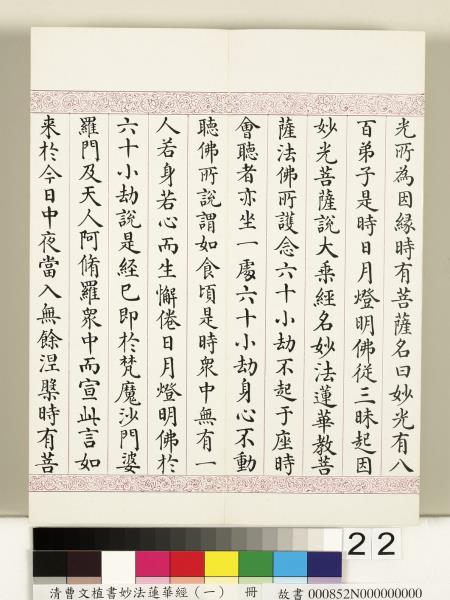 光所為因緣時有菩薩名曰妙光有八
百弟子是時日月燈明佛從三昧起因
妙光菩薩說大乘經名妙法蓮華教菩
薩法佛所護念六十小劫不起于座時
會聽者亦坐一處六十小劫身心不動
聽佛所說謂如食頃是時眾中無有一
人若身若心而生懈倦日月燈明佛於
六十小劫說是經已即於梵魔沙門婆
羅門及天人阿脩羅眾中而宣此言如
來於今日中夜當入無餘涅槃時有菩
22
清曹文植書妙法蓮華經(一) 冊 故書 000852N000000000